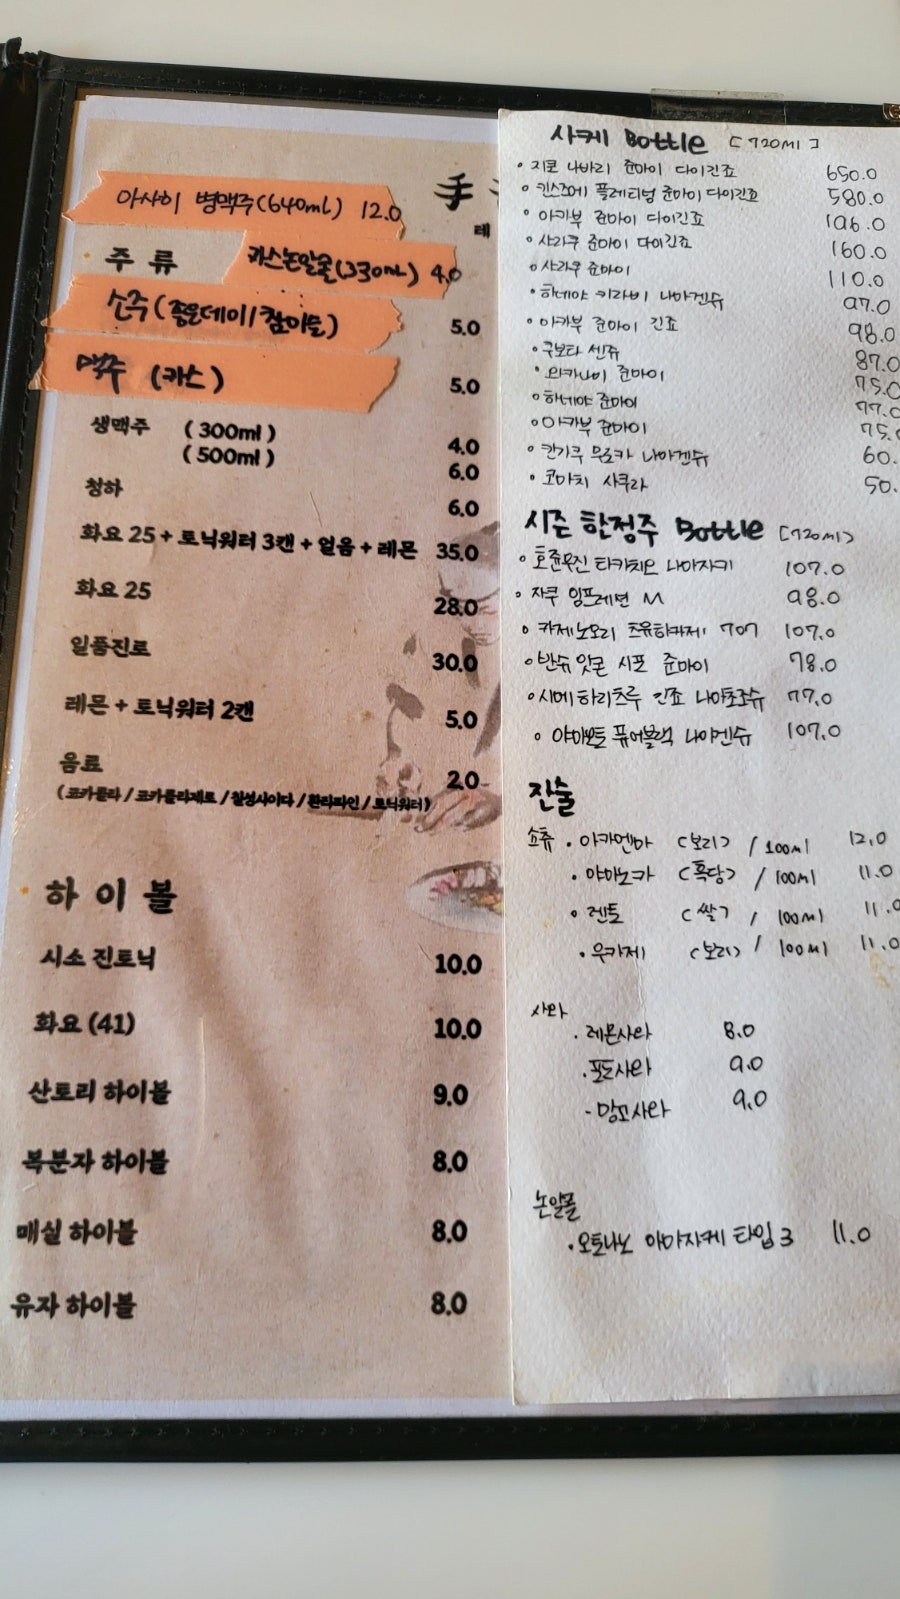 아사히 병맥주(640ml) 12.0
手
테
주 류
카스논알콜(330ml) 4.0
소주(좋은데이/참이슬) 5.0
맥주 (카스) 5.0
생맥주 (300ml) 4.0
(500ml) 6.0
청하 6.0
화요 25 + 토닉워터 3캔 + 얼음 + 레몬 35.0
화요 25 28.0
일품진로 30.0
레몬 + 토닉워터 2캔 5.0
음료 2.0
(코카콜라 / 코카콜라제로 / 칠성사이다 / 환타파인 / 토닉워터)
하 이 볼
시소 진토닉 10.0
화요 (41) 10.0
산토리 하이볼 9.0
복분자 하이볼 8.0
매실 하이볼 8.0
유자 하이볼 8.0
사케 Bottle [720ml]
• 지콘 나바리 쥰마이 다이긴죠 650.0
• 킨스즈메 플래티넘 쥰마이 다이긴죠 580.0
• 아카부 쥰마이 다이긴죠 196.0
• 샤라쿠 쥰마이 다이긴죠 160.0
• 샤라쿠 쥰마이 110.0
• 하네야 키라비 나마겐슈 97.0
• 아카부 쥰마이 긴죠 98.0
• 쿠보타 센쥬 87.0
• 와카나미 쥰마이 75.0
• 하네야 쥰마이 77.0
• 아카부 쥰마이 75.
• 칸기쿠 무로카 나마겐슈 60.
• 코마치 사쿠라 50.
시즌 한정주 Bottle [720ml]
• 호쥰무진 타카치요 나마자키 107.0
• 자쿠 임프레션 M 98.0
• 카제노모리 츠유하카제 707 107.0
• 반슈 잇콘 시포 쥰마이 78.0
• 시메하리츠루 긴죠 나마쵸조슈 77.0
• 야마모토 퓨어블랙 나마겐슈 107.0
잔술
쇼츄 • 아카엔마 (보리) / 100ml 12.0
• 야마노카 (흑당) / 100ml 11.0
• 렌토 (쌀) / 100ml 11.0
• 우카제 (보리) / 100ml 11.0
사와
• 레몬사와 8.0
• 포도사와 9.0
- 망고사와 9.0
논알콜
• 오토나노 아마자케 타입 3 11.0